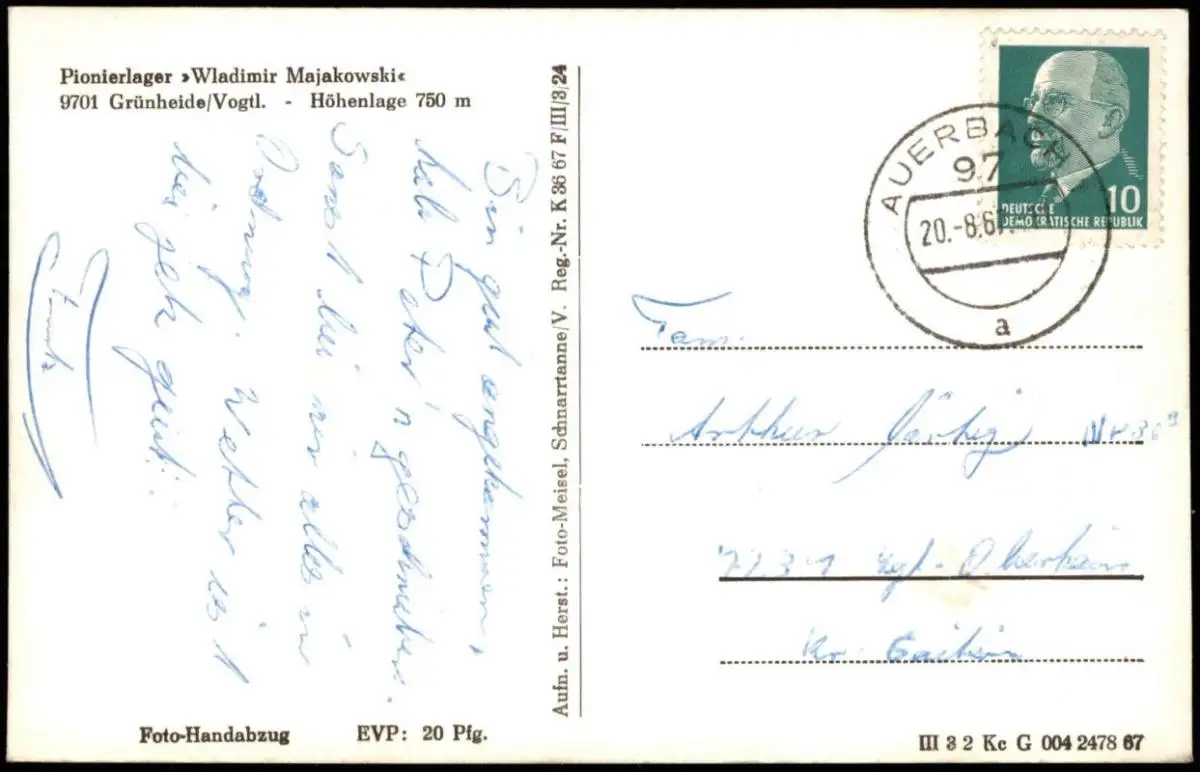 Pionierlager »Wladimir Majakowski«
9701 Grünheide/Vogtl. - Höhenlage 750 m
Bin gut angekommen,
hab Peter'n geschrieben.
Sonst hier alles in
Ordnung. Wetter ist
hier jetz gut.
Foto-Handabzug EVP: 20 Pfg.
Aufn. u. Herst.: Foto-Meisel, Schnarrtanne/V. Reg.-Nr. K 36 67 F/III/3/24
10
DEUTSCHE
DEMOKRATISCHE REPUBLIK
AUERBACH
97
20.-8.67
a
Fam.
Arthur
Kr.
III 3 2 Kc G 004 2478 67